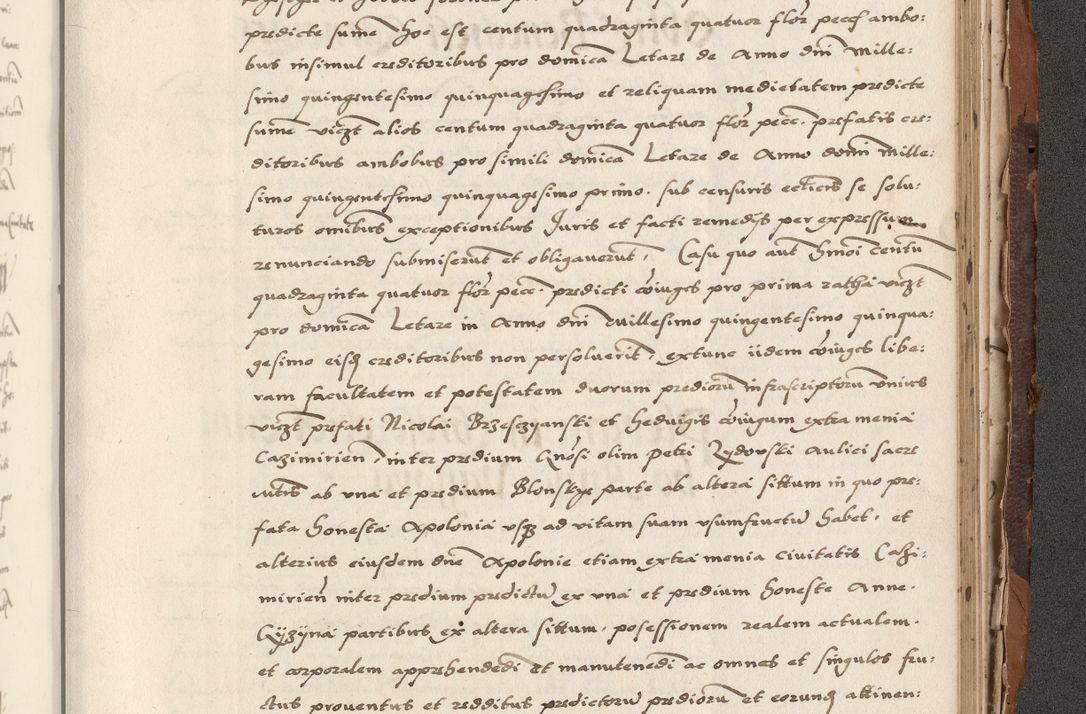 predicte sume hoc est centum quadraginta quatuor flor pecc ambo:
bus insimul creditoribus pro domica Letare de Anno dni Mille:
simo quingentesimo quinquagesimo et reliquam medietatem predicte
sume viczt alios centum quadraginta quatuor flor pecc. prefatis cre:
ditoribus ambobus pro simili domica Letare de Anno domi Mille:
simo quingentesimo quinquagesimo primo. sub censuris ecclicis se solu:
turos omibus exceptionibus Juris et facti remedijs per expressum
renunciando submiserut et obligaverut, Casu quo aut hmoi centu
quadraginta quatuor flor pecc. predicti coiuges pro prima ratha viczt
pro domica Letare in Anno dni Millesimo quingentesimo quinqua:
gesimo eisd creditoribus non persoluerit, extunc iidem coiuges libe:
ram facultatem et potestatem duorum predioru infrascriptoru unius
viczt prefati Nicolai Brzesczyanski et Hedvigis coiugum extra menia
Cazimirien, inter predium Gnosi olim Petri Rydovski Aulici sacre
ab una et predium Blonskye parte ab altera sittum in quo pre:
fata honesta Apolonia usq ad vitam suam usumfructu habet, et
alterius eiusdem dne Apolonie etiam extra menia civitatis Cazi:
mirien inter predium predictu ex una et predium honeste Anne.
partibus ex altera sittum, posessionem realem actualem.
et corporalem apprehendedi et manutenedi ac omnes et singulos fru:
ctus proventus et redditus predictoru predioru et eorund attinen: